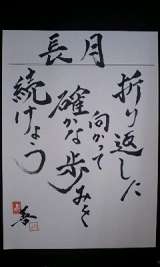 長月
折り返しに
向かって
確かな歩みを
続けよう